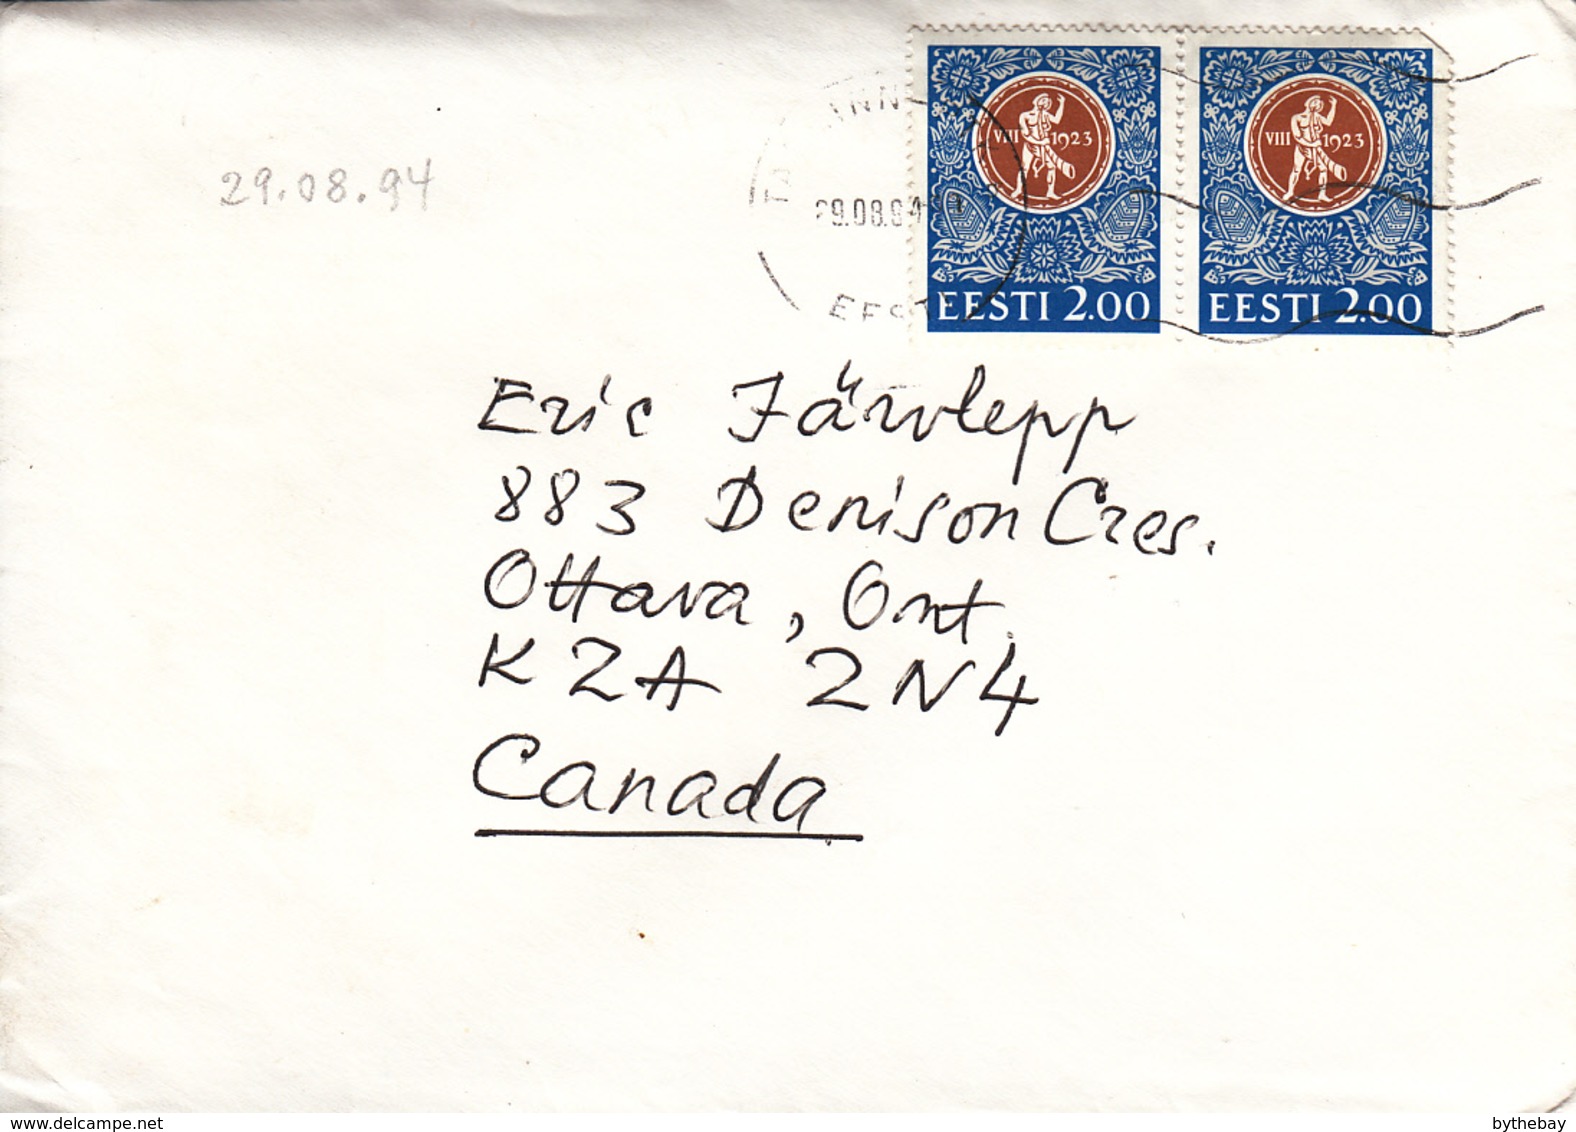 29.08.94
29.08.94
EESTI
VIII 1923
EESTI 2.00
VIII 1923
EESTI 2.00
Eric Järvlepp
883 Denison Cres.
Ottava, Ont.
K2A 2N4
Canada
delcampe.net
bythebay